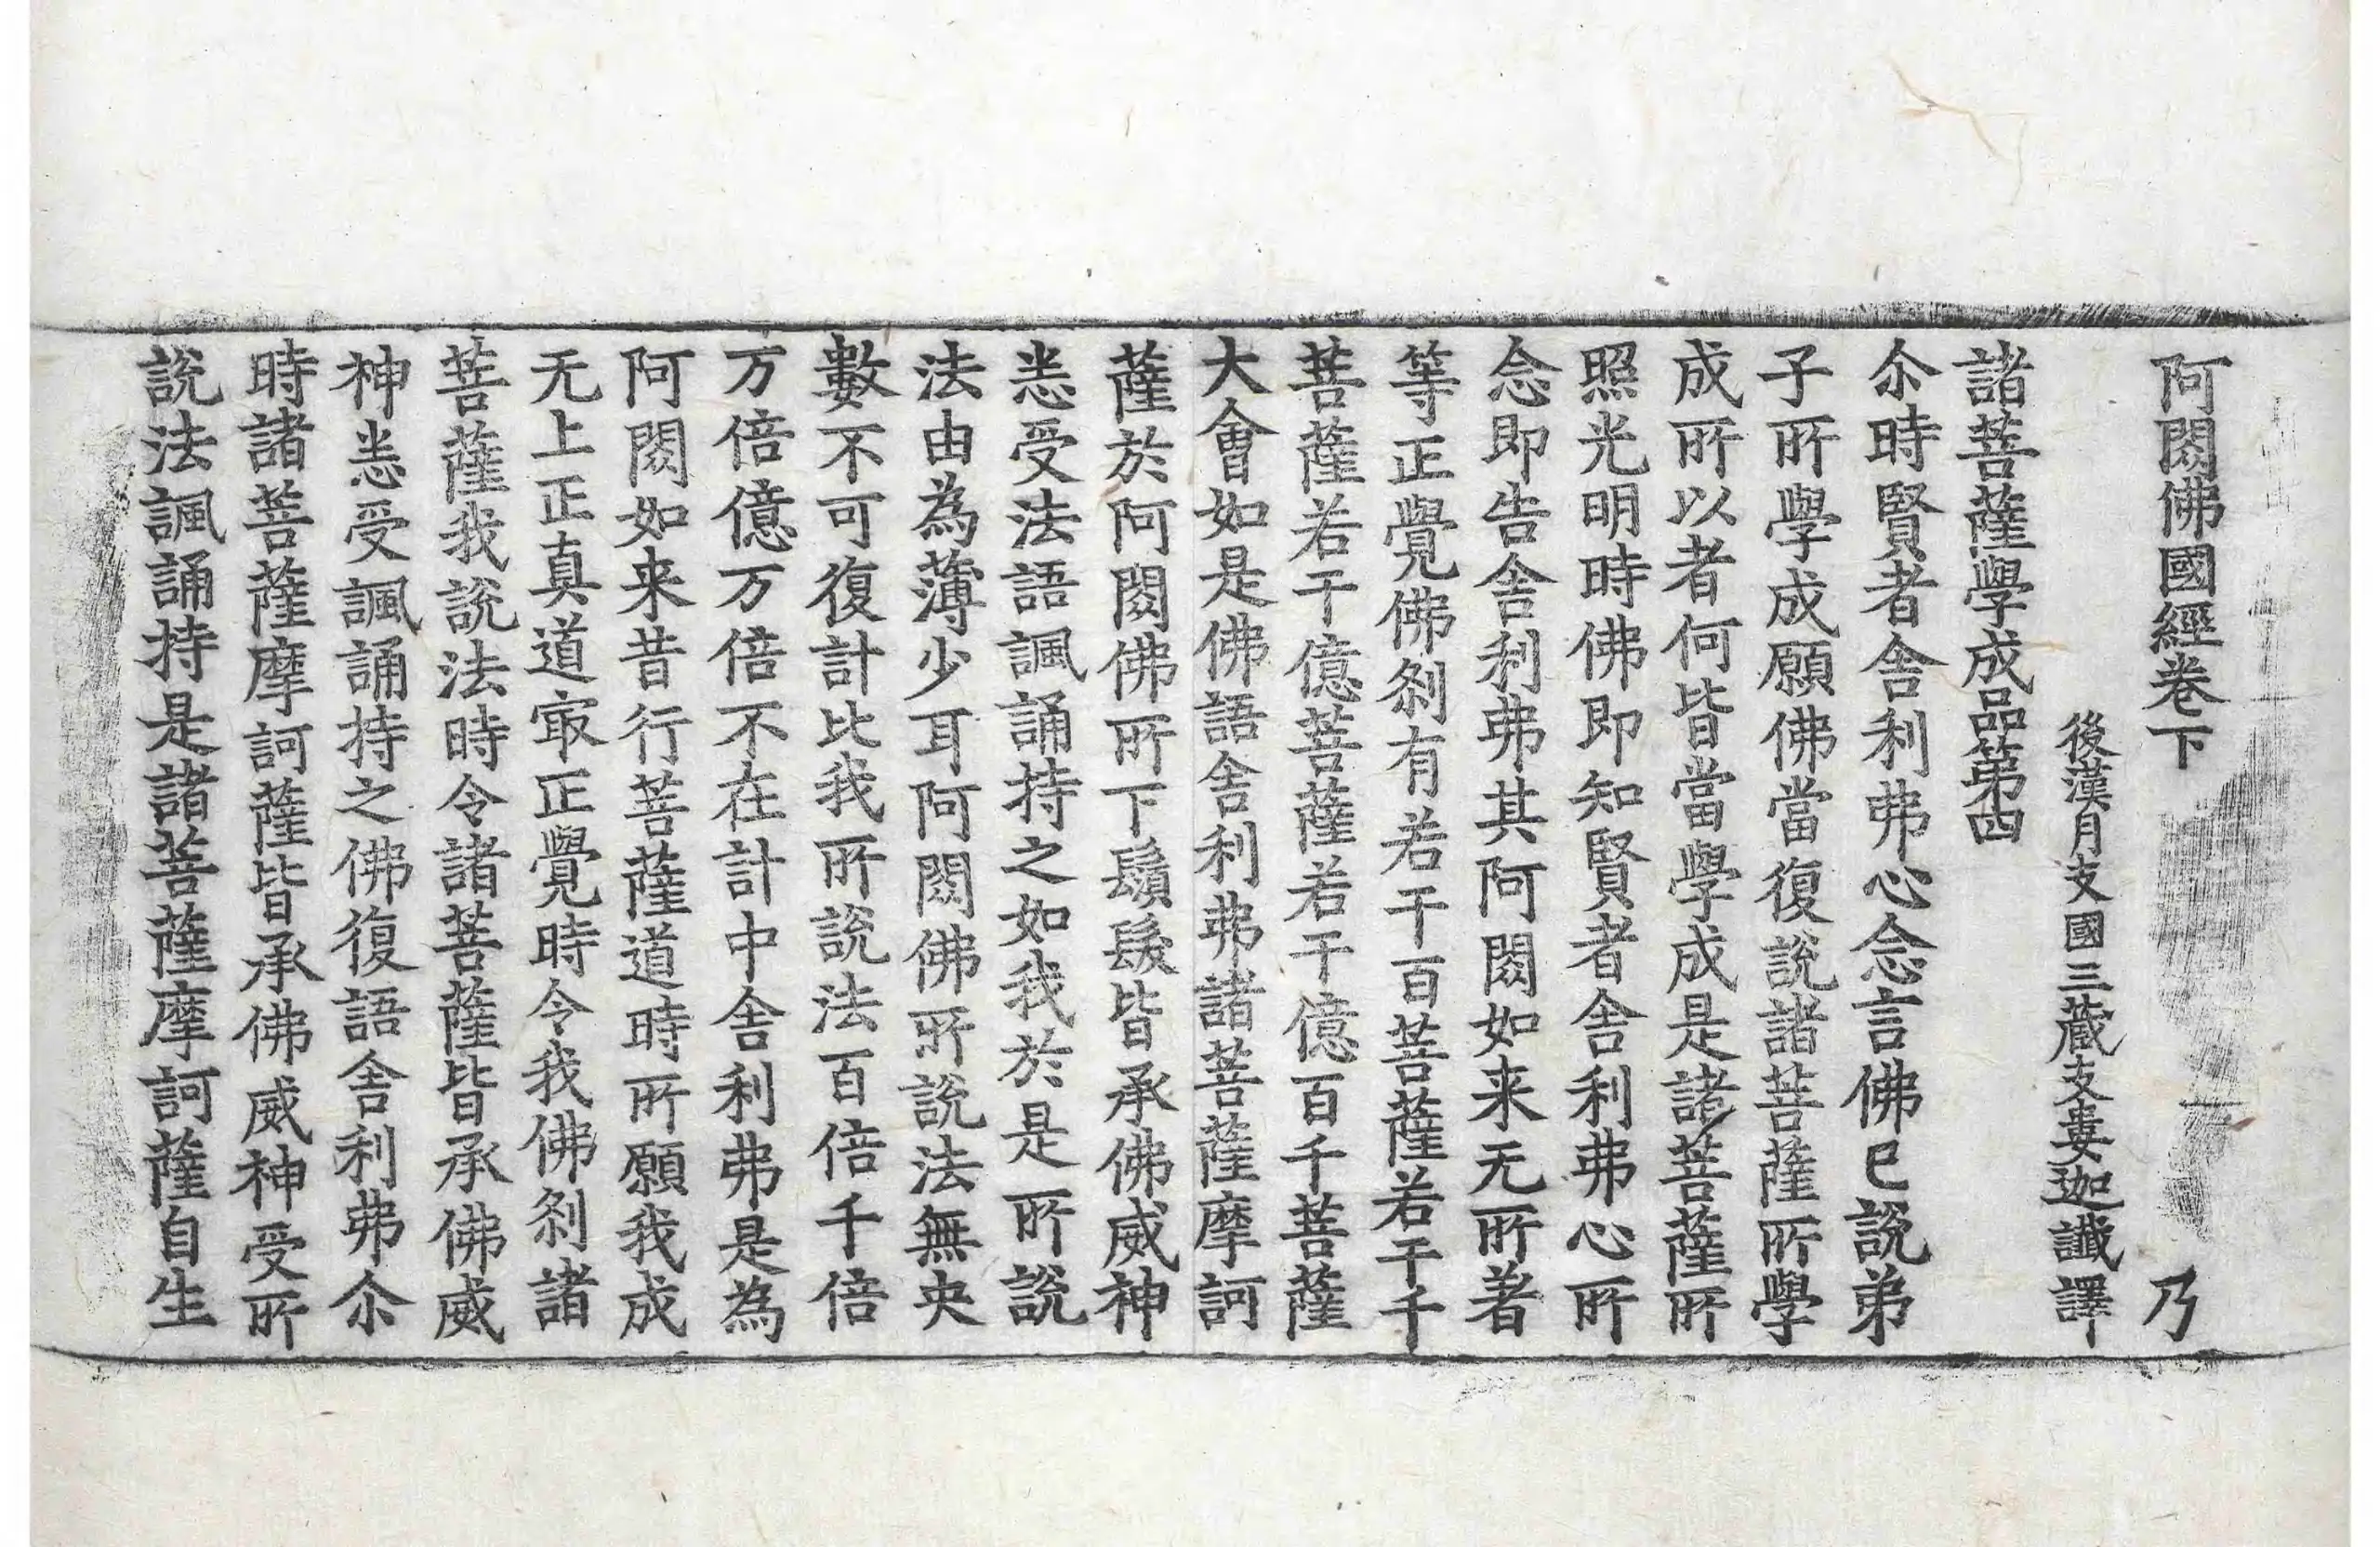 阿閦佛國經卷下 乃
後漢月支國三藏支婁迦讖譯
諸菩薩學成品第四
尒時賢者舍利弗心念言佛已說弟
子所學成願佛當復說諸菩薩所學
成所以者何皆當學成是諸菩薩所
照光明時佛即知賢者舍利弗心所
念即告舍利弗其阿閦如来无所著
等正覺佛剎有若干百菩薩若干千
菩薩若干億菩薩若干億百千菩薩
大會如是佛語舍利弗諸菩薩摩訶
薩於阿閦佛所下鬚髮皆承佛威神
悉受法語諷誦持之如我於是所說
法由為薄少耳阿閦佛所說法無央
數不可復計比我所說法百倍千倍
万倍億万倍不在計中舍利弗是為
阿閦如来昔行菩薩道時所願我成
无上正真道㝡正覺時令我佛剎諸
菩薩我說法時令諸菩薩皆承佛威
神悉受諷誦持之佛復語舍利弗尒
時諸菩薩摩訶薩皆承佛威神受所
說法諷誦持是諸菩薩摩訶薩自生